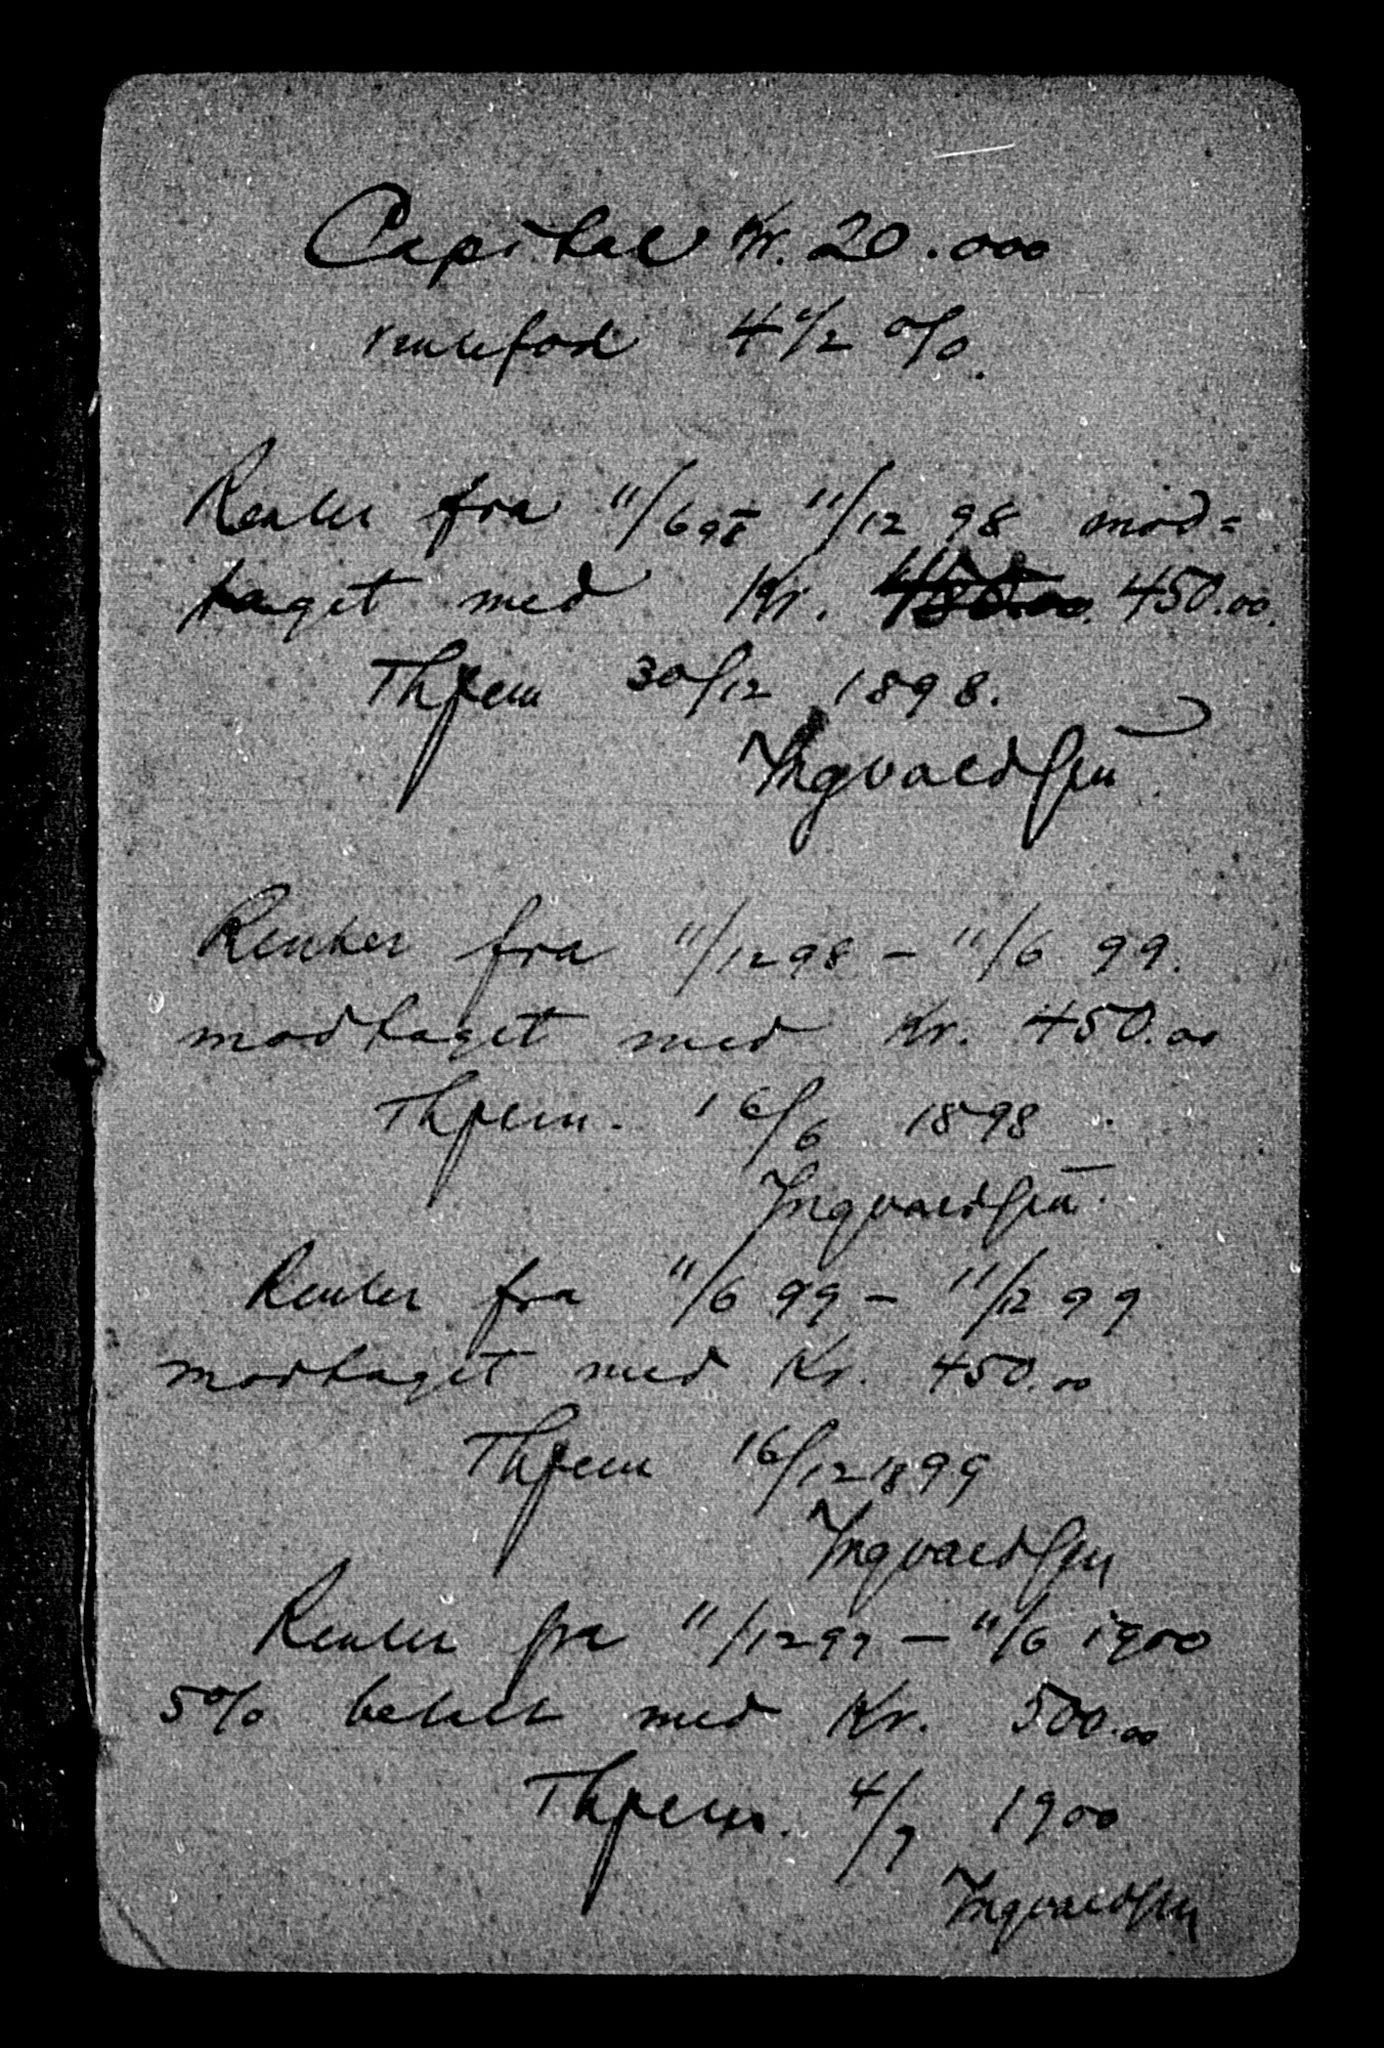 Capital Kr. 20.000
rentefod 4 1/2 %.
Renter fra 11/6 98 11/12 98 mod=
taget med Kr. 450.00.
Thjem 30/12 1898.
Ingvaldsen
Renter fra 11/12 98 – 11/6 99.
modtaget med Kr. 450.00
Thjem. 16/6 1898.
Ingvaldsen.
Renter fra 11/6 99 – 11/12 99
modtaget med Kr. 450.00
Thjem 16/12 1899
Ingvaldsen
Renter fra 11/12 99 – 11/6 1900
5% betalt med Kr. 500.00
Thjem. 4/7 1900
Ingvaldsen